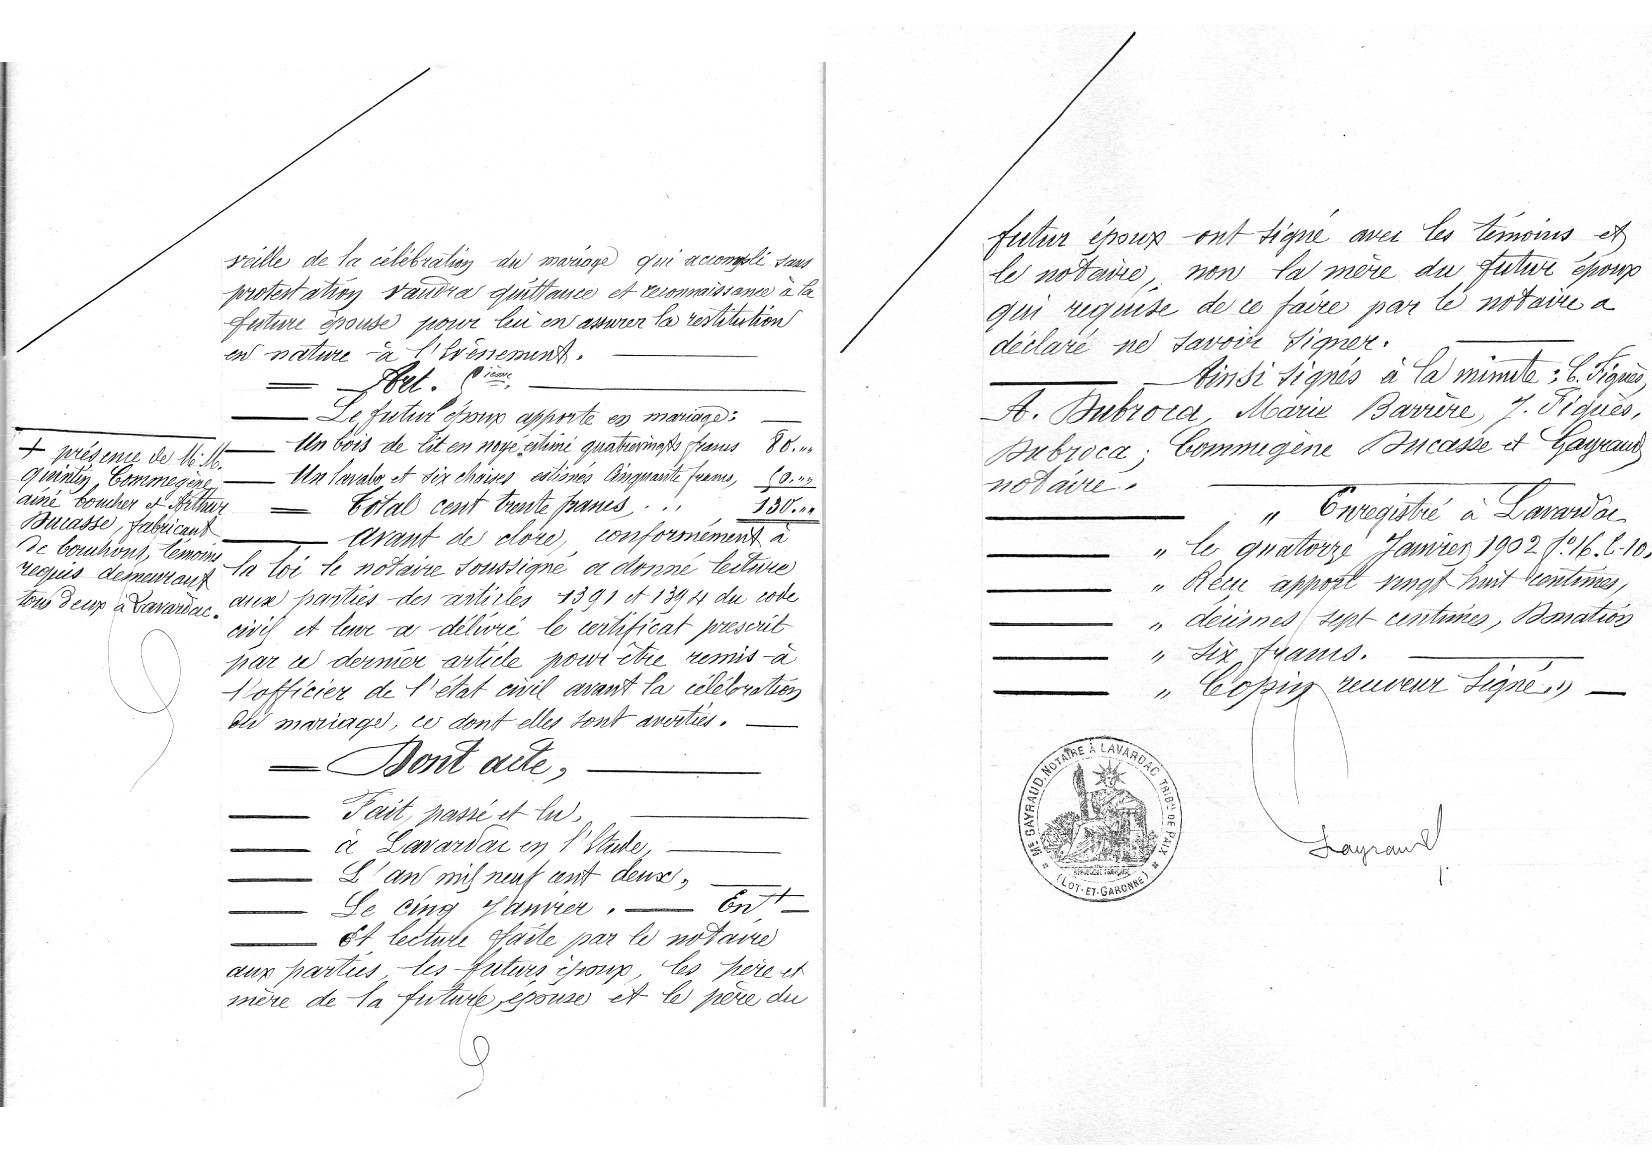 veille de la célébration du mariage qui accompli sans
protestation vaudra quittance et reconnaissance à la
future épouse pour lui en assurer la restitution
en nature à l'Evènement.
Art. ième
Le futur époux apporte en mariage:
Un bois de lit en noyé estimé quatrevingts francs 80.""
Un lavabo et six chaises estimés Cinquante francs, 50.""
Total cent trente francs ... 130.""
+ présence de M.M.
quintin, Commegène
ainé boucher et Arthur
Ducasse, fabricant
de bouchons, témoins
requis demeurant
tous deux à Lavardac.
Avant de clore, conformément à
la loi le notaire soussigné a donné lecture
aux parties des articles 1391 et 1394 du code
civil et leur a délivré le certificat prescrit
par ce dernier article pour être remis à
l'officier de l'état civil avant la célébration
du mariage, ce dont elles sont averties.
Dont acte,
Fait, passé et lu,
à Lavardac en l'Etude,
L'an mil neuf cent deux,
Le cinq Janvier. En+
Et lecture faite par le notaire
aux parties, les futurs époux, les père et
mère de la future épouse et le père du
futur époux ont signé avec les témoins et
le notaire, non la mère du futur époux
qui requise de ce faire par le notaire a
déclaré ne savoir signer.
Ainsi signés à la minute: C. Fiquès,
A. Dubroca, Marie Barrère, J. Fiquès,
Dubroca; Commegène Ducasse et Gayraud
notaire.
" Enregistré à Lavardac
" le quatorze Janvier 1902 fo 16. C. 10,
" Reçu apport vingt huit centimes,
" décimes sept centimes, Donation
" six francs.
" Copin receveur signé."
Me GAYRAUD, NOTAIRE À LAVARDAC, TRIBal DE PAIX
RÉPUBLIQUE FRANÇAISE
(LOT-ET-GARONNE)
Gayraud